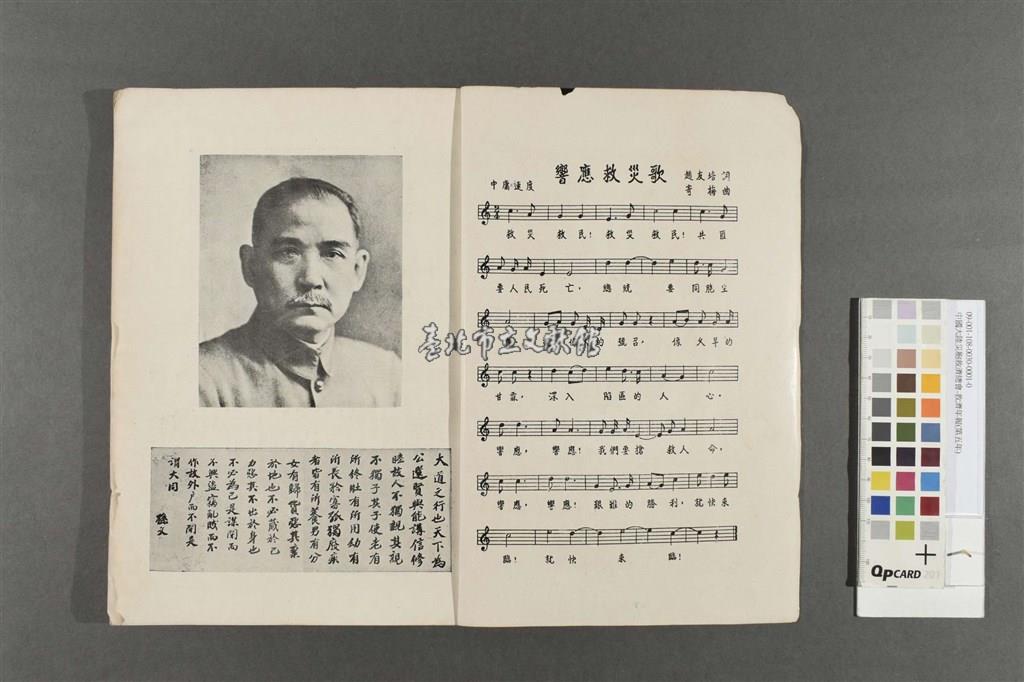 大道之行也天下為
公選賢與能講信修
睦故人不獨親其親
不獨子其子使老有
所終壯有所用幼有
所長矜寡孤獨廢疾
者皆有所養男有分
女有歸貨惡其棄
於地也不必藏於己
力惡其不出於身也
不必為己是謀閉而
不興盜竊亂賊而不
作故外戶而不閉是
謂大同
孫文
響應救災歌
中庸速度
趙友培 詞
寄梅 曲
救災 救民！救災 救民！共匪
要人民死 亡，總統 要 同胞生
的 號召，像大旱的
甘霖，深入 陷區的 人 心，
響應，響應！我們要搶 救人命，
響應，響應！的 勝利，就快來
臨！就 快 來 臨！
臺北市立文獻館
09-001-108-0030-0001-0
中國大陸災胞救濟總會-救濟年報(第五年)
QPCARD 201